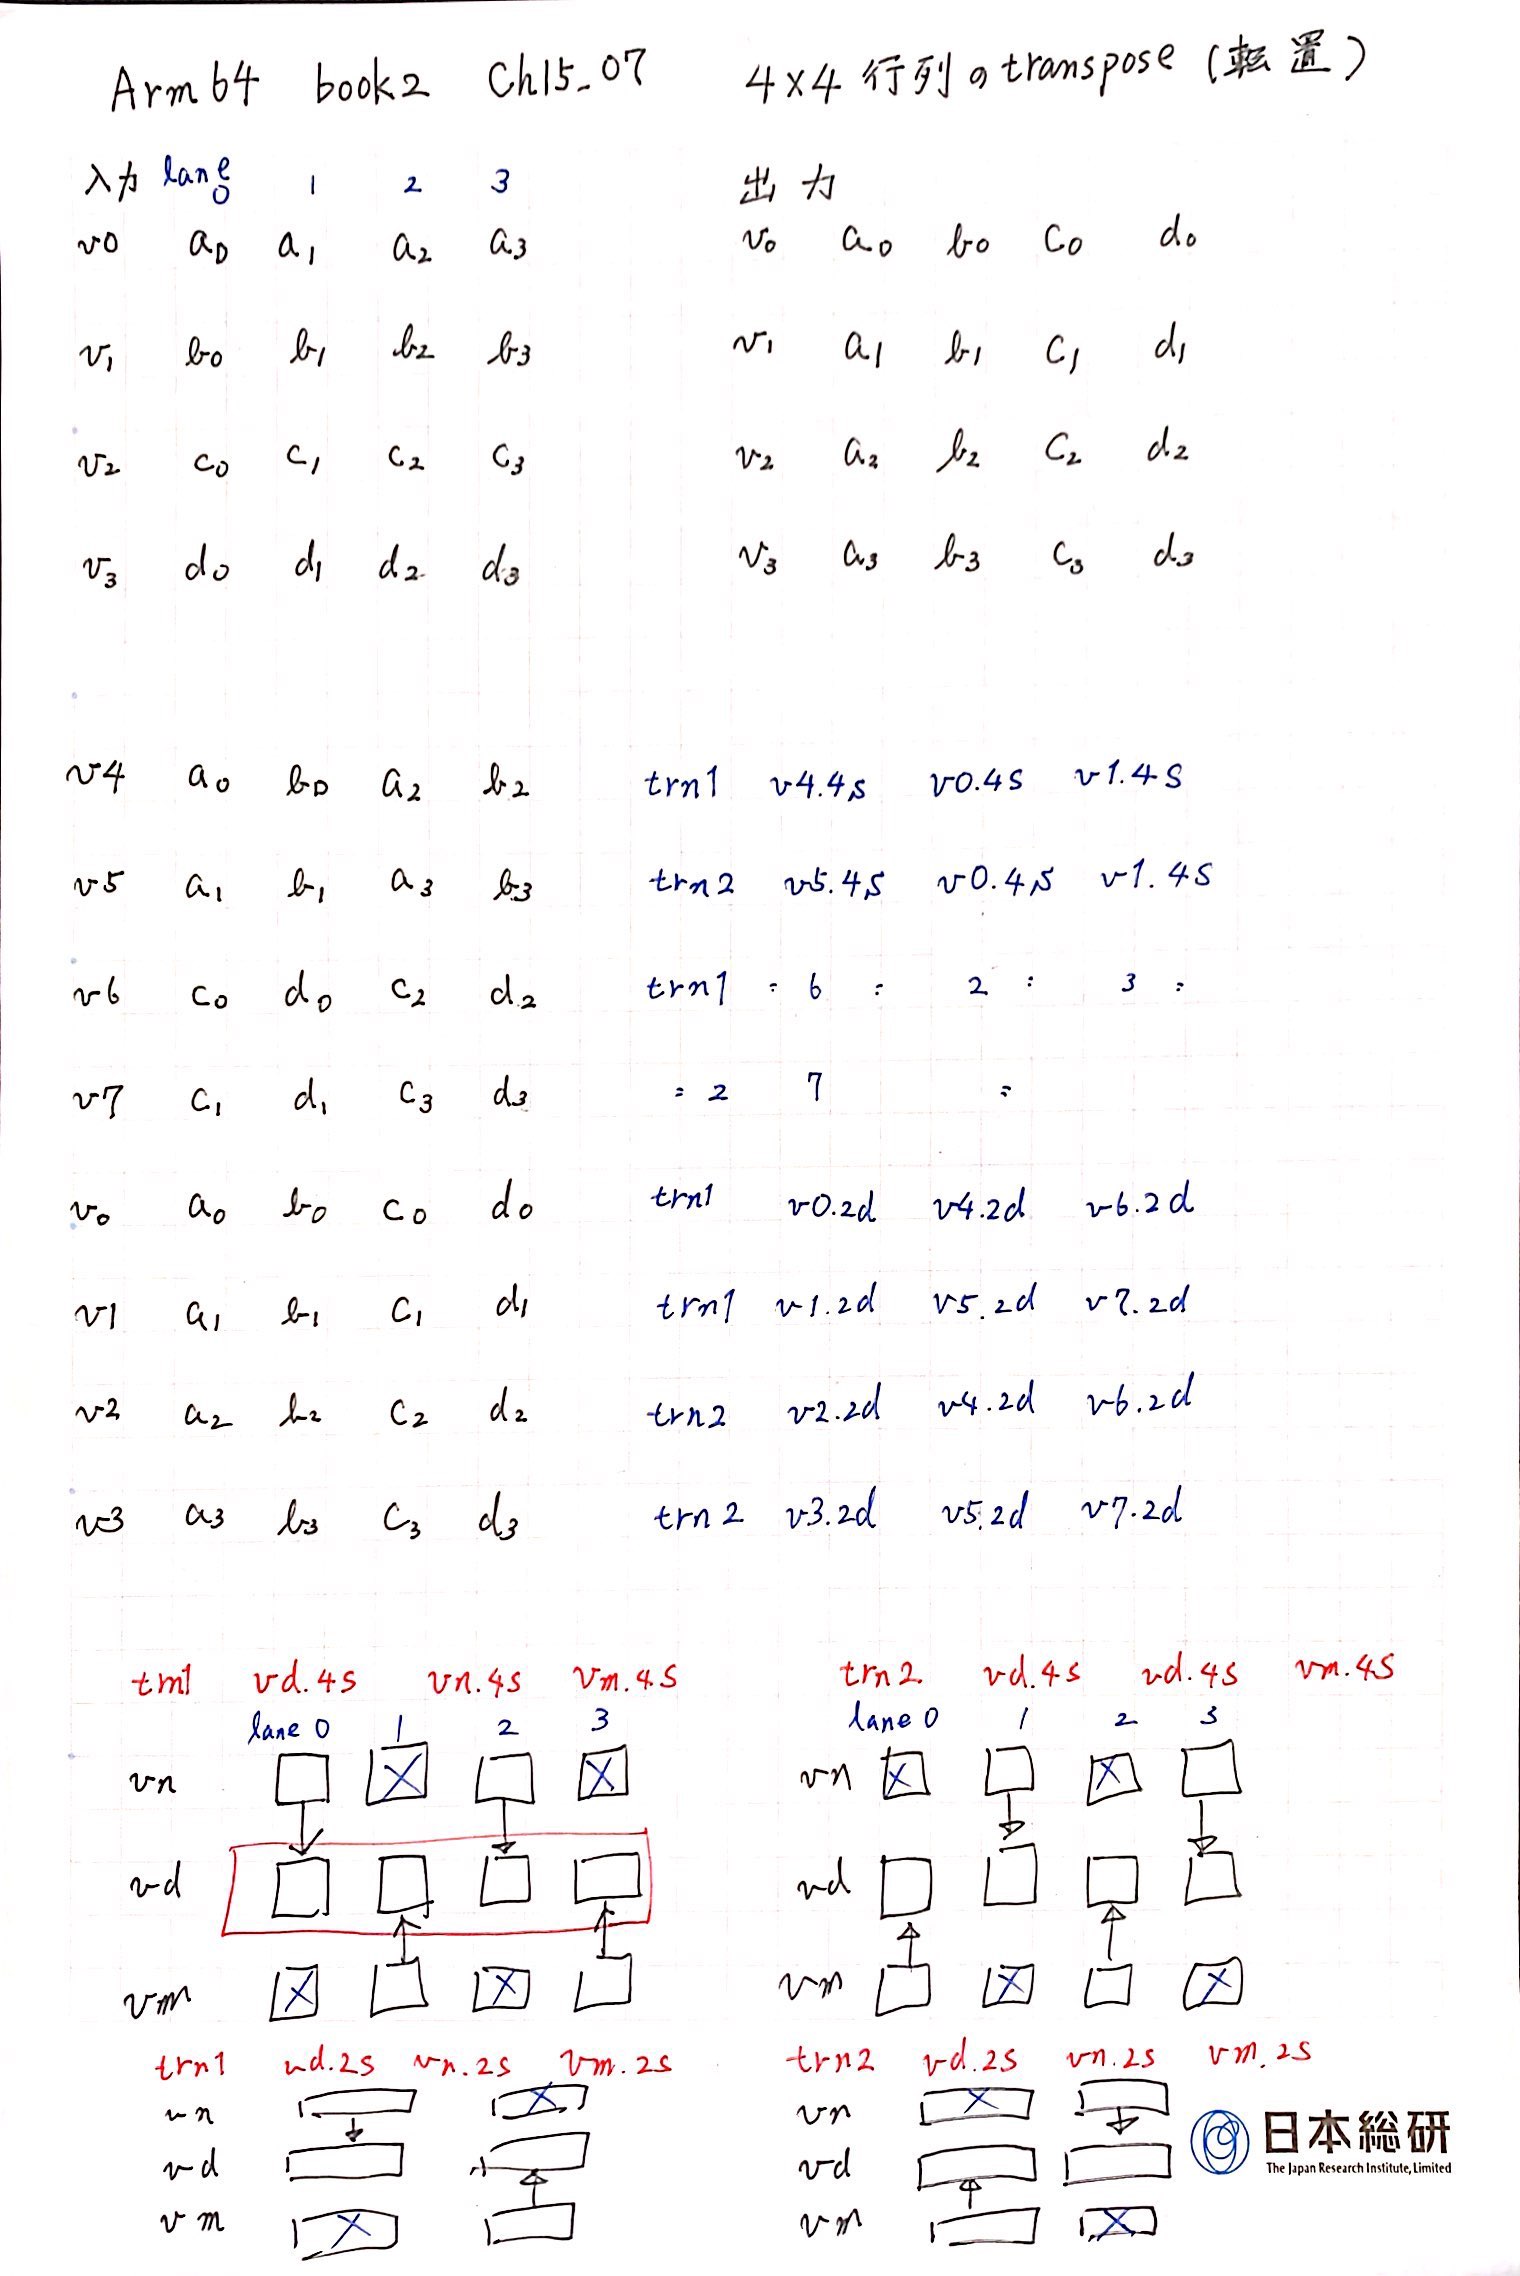 Arm64 book2 Ch15_07 4×4行列のtranspose(転置)
入力 lane0 1 2 3 出力
v0 a0 a1 a2 a3 v0 a0 b0 c0 d0
v1 b0 b1 b2 b3 v1 a1 b1 c1 d1
v2 c0 c1 c2 c3 v2 a2 b2 c2 d2
v3 d0 d1 d2 d3 v3 a3 b3 c3 d3
v4 a0 b0 a2 b2 trn1 v4.4s v0.4s v1.4s
v5 a1 b1 a3 b3 trn2 v5.4s v0.4s v1.4s
v6 c0 d0 c2 d2 trn1 : 6 : 2 : 3 :
v7 c1 d1 c3 d3 : 2 7 :
v0 a0 b0 c0 d0 trn1 v0.2d v4.2d v6.2d
v1 a1 b1 c1 d1 trn1 v1.2d v5.2d v7.2d
v2 a2 b2 c2 d2 trn2 v2.2d v4.2d v6.2d
v3 a3 b3 c3 d3 trn2 v3.2d v5.2d v7.2d
trn1 vd.4s vn.4s vm.4s
lane 0 1 2 3
vn
vd
vm
trn2 vd.4s vd.4s vm.4s
lane 0 1 2 3
vn
vd
vm
trn1 vd.2s vn.2s vm.2s
vn
vd
vm
trn2 vd.2s vn.2s vm.2s
vn
vd
vm
日本総研
The Japan Research Institute, Limited